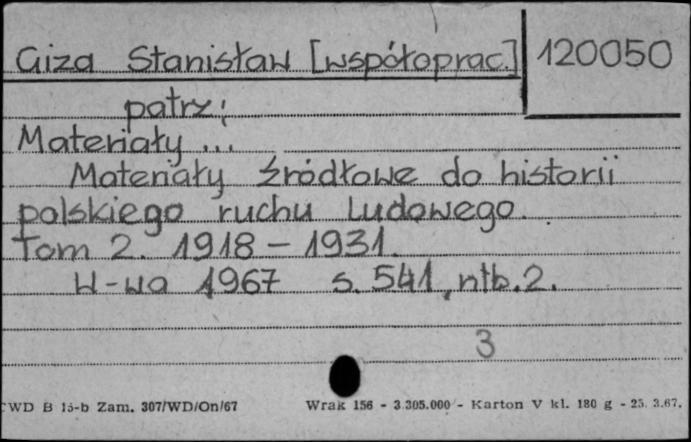 Giza Stanisław [współoprac.] 120050
patrz:
Materiały ...
Materiały źródłowe do historii
polskiego ruchu Ludowego.
Tom 2. 1918 - 1931.
W-wa 1967 s. 541, ntb. 2.
3
CWD B 15-b Zam. 307/WD/On/67 Wrak 156 - 3.305.000 - Karton V kl. 180 g - 23. 3.67.